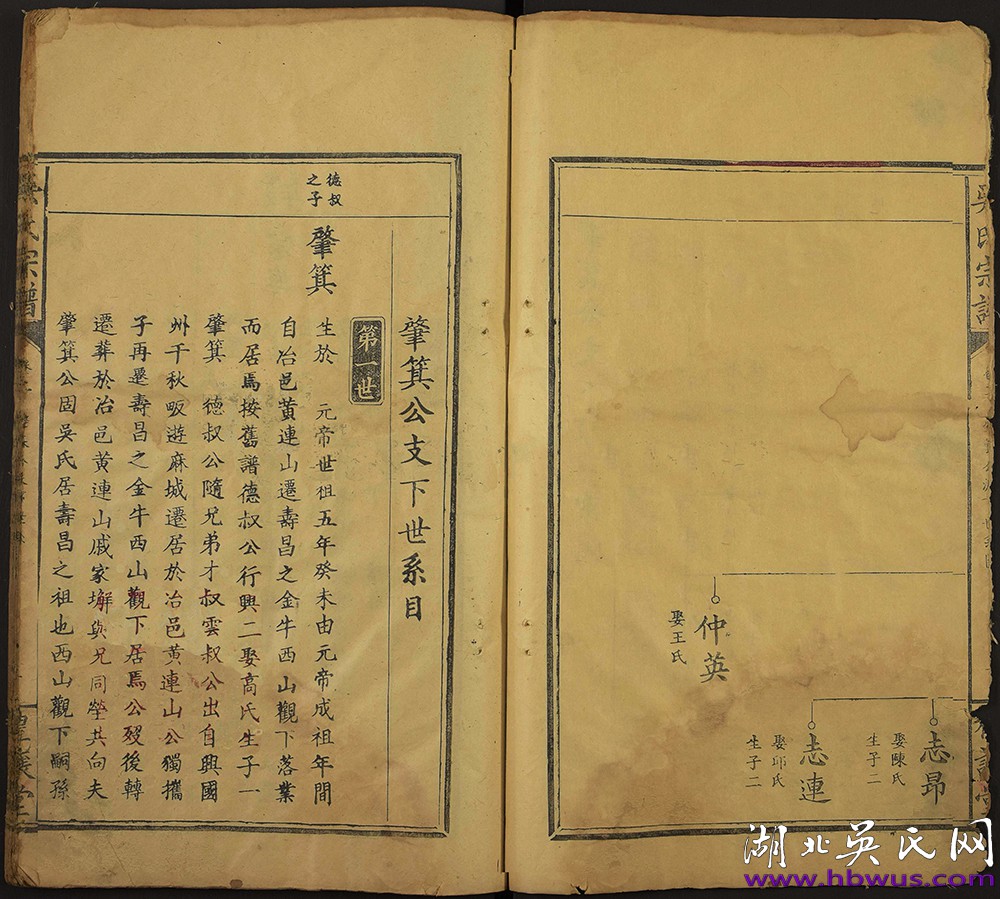 吳氏宗譜
志昂
娶陳氏
生子二
志連
娶邱氏
生子二
仲英
娶王氏
肇箕公支下世系目
第一世
德叔
之子
肇箕
生於　元帝世祖五年癸未由元帝成祖年間
自冶邑黄連山遷壽昌之金牛西山觀下落業
而居焉按舊譜德叔公行興二娶高氏生子一
肇箕　德叔公隨兄弟才叔雲叔公出自興國
州千秋畈遊麻城遷居於冶邑黄連山公獨攜
子再遷壽昌之金牛西山觀下居焉公歿後轉
遷葬於冶邑黄連山戚家塀與兄同塋共向夫
肇箕公固吳氏居壽昌之祖也西山觀下嗣孫
氏宗譜
湖北吴氏网
www.hbwus.com